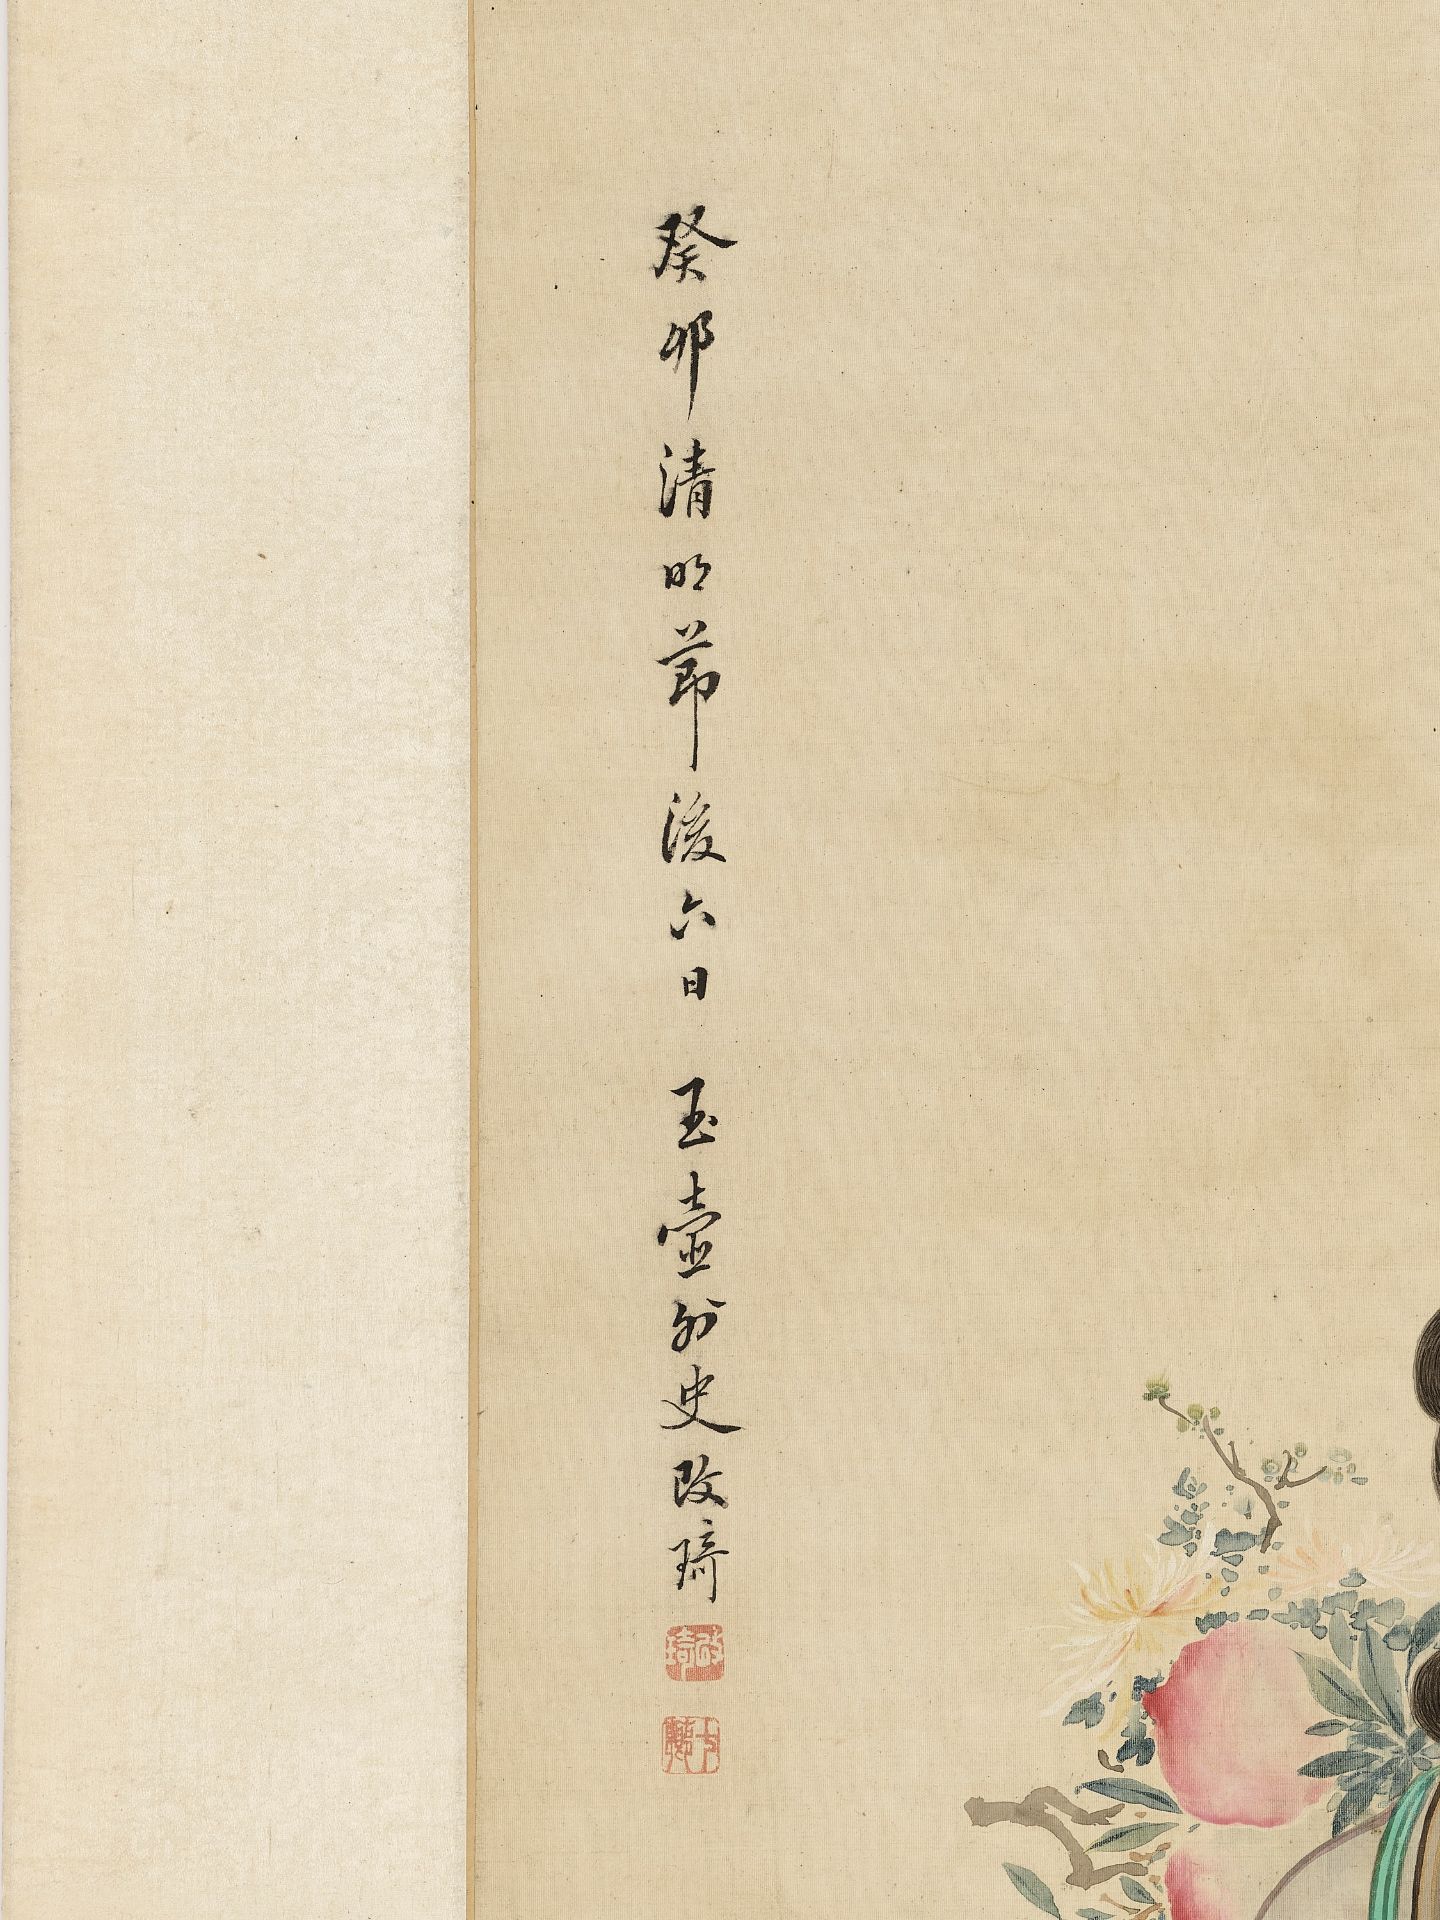 癸卯清明節後六日 玉壺外史改琦
改琦